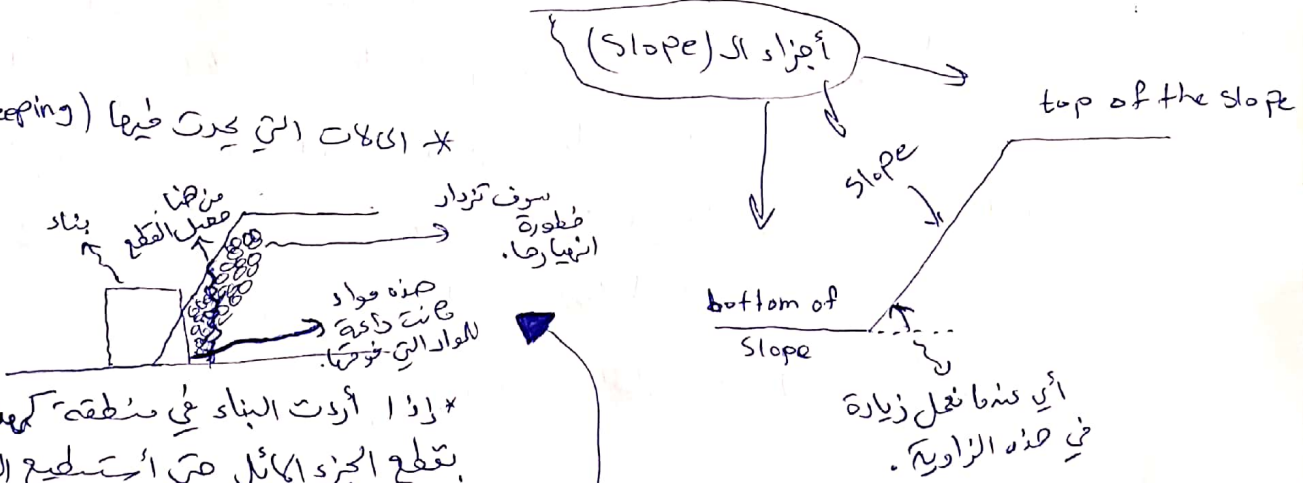 أجزاء الـ (Slope)
top of the slope
slope
bottom of
slope
أي عندما نعمل زيادة
في هذه الزاوية.
* الحالات التي يحدث فيها (eeping
سوف تزداد
خطورة
انهيارها.
من هنا
القطع
بناء
هذه مواد
كانت داعمة
للمواد التي فوقها.
* إذا أردت البناء في منطقة كهذ
بقطع الجزء المائل حتى أستطيع ال